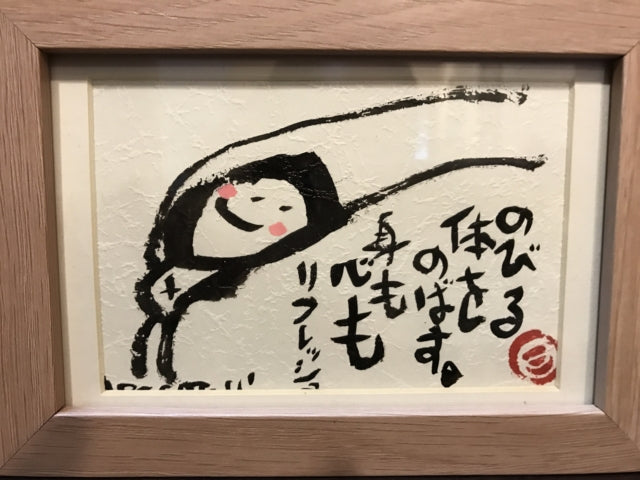 のびる
体を
のばす。
身も
心も
リフレッシュ